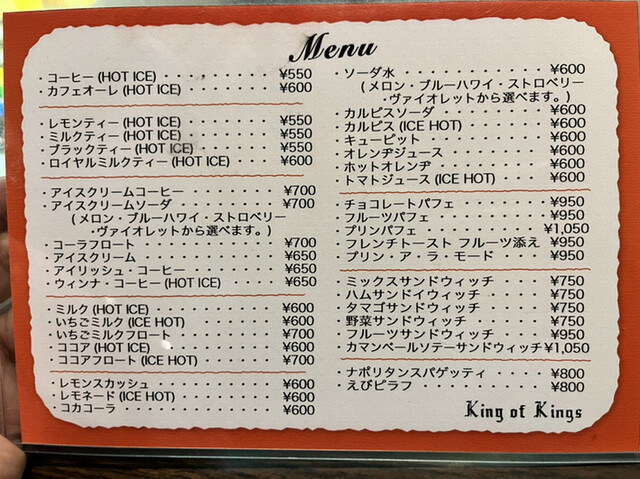 Menu
・コーヒー (HOT ICE) ・・・・・・・・ ¥550
・カフェオーレ (HOT ICE) ・・・・・・ ¥600
・レモンティー (HOT ICE) ・・・・・・ ¥550
・ミルクティー (HOT ICE) ・・・・・・ ¥550
・ブラックティー (HOT ICE) ・・・・・ ¥550
・ロイヤルミルクティー (HOT ICE) ・・ ¥600
・アイスクリームコーヒー ・・・・・・ ¥700
・アイスクリームソーダ ・・・・・・・ ¥700
(メロン・ブルーハワイ・ストロベリー
・ヴァイオレットから選べます。)
・コーラフロート ・・・・・・・・・・ ¥700
・アイスクリーム ・・・・・・・・・・ ¥650
・アイリッシュ・コーヒー ・・・・・・ ¥650
・ウィンナ・コーヒー (HOT ICE) ・・・ ¥650
・ミルク (HOT ICE) ・・・・・・・・・ ¥600
・いちごミルク (ICE HOT) ・・・・・・ ¥600
・いちごミルクフロート ・・・・・・・ ¥700
・ココア (HOT ICE) ・・・・・・・・・ ¥600
・ココアフロート (ICE HOT) ・・・・・ ¥700
・レモンスカッシュ ・・・・・・・・・ ¥600
・レモネード (ICE HOT) ・・・・・・・ ¥600
・コカコーラ ・・・・・・・・・・・・ ¥600
・ソーダ水 ・・・・・・・・・・・・・ ¥600
(メロン・ブルーハワイ・ストロベリー
・ヴァイオレットから選べます。)
・カルピスソーダ ・・・・・・・・・・ ¥600
・カルピス (ICE HOT) ・・・・・・・・ ¥600
・キューピット ・・・・・・・・・・・ ¥600
・オレンヂジュース ・・・・・・・・・ ¥600
・ホットオレンヂ ・・・・・・・・・・ ¥600
・トマトジュース (ICE HOT) ・・・・・ ¥600
・チョコレートパフェ ・・・・・・・・ ¥950
・フルーツパフェ ・・・・・・・・・・ ¥950
・プリンパフェ ・・・・・・・・・・・ ¥1,050
・フレンチトースト フルーツ添え ・・ ¥950
・プリン・ア・ラ・モード ・・・・・・ ¥950
・ミックスサンドウィッチ ・・・・・・ ¥750
・ハムサンドイウィッチ ・・・・・・・ ¥750
・タマゴサンドウィッチ ・・・・・・・ ¥750
・野菜サンドウィッチ ・・・・・・・・ ¥750
・フルーツサンドウィッチ ・・・・・・ ¥950
・カマンベールソテーサンドウィッチ ¥1,050
・ナポリタンスパゲッティ ・・・・・・ ¥800
・えびピラフ ・・・・・・・・・・・・ ¥800
King of Kings